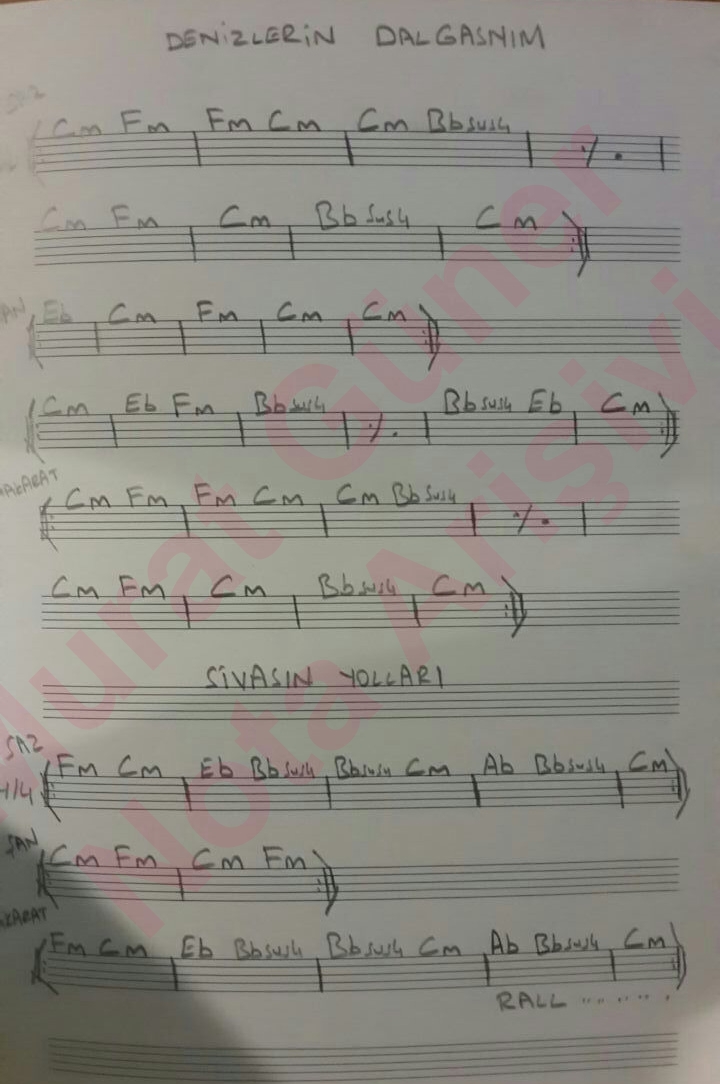 DENİZLERİN DALGASNIM
SAZ
Cm Fm Fm Cm Cm Bbsus4 ٪
Cm Fm Cm Bbsus4 Cm
ŞAN
Eb Cm Fm Cm Cm
Cm Eb Fm Bbsus4 ٪ Bbsus4 Eb Cm
NAKARAT
Cm Fm Fm Cm Cm Bbsus4 ٪
Cm Fm Cm Bbsus4 Cm
SİVASIN YOLLARI
SAZ
Fm Cm Eb Bbsus4 Bbsus4 Cm Ab Bbsus4 Cm
4/4
ŞAN
Cm Fm Cm Fm
KARAT
Fm Cm Eb Bbsus4 Bbsus4 Cm Ab Bbsus4 Cm
RALL ........
Murat Güner
Nota Arişivi